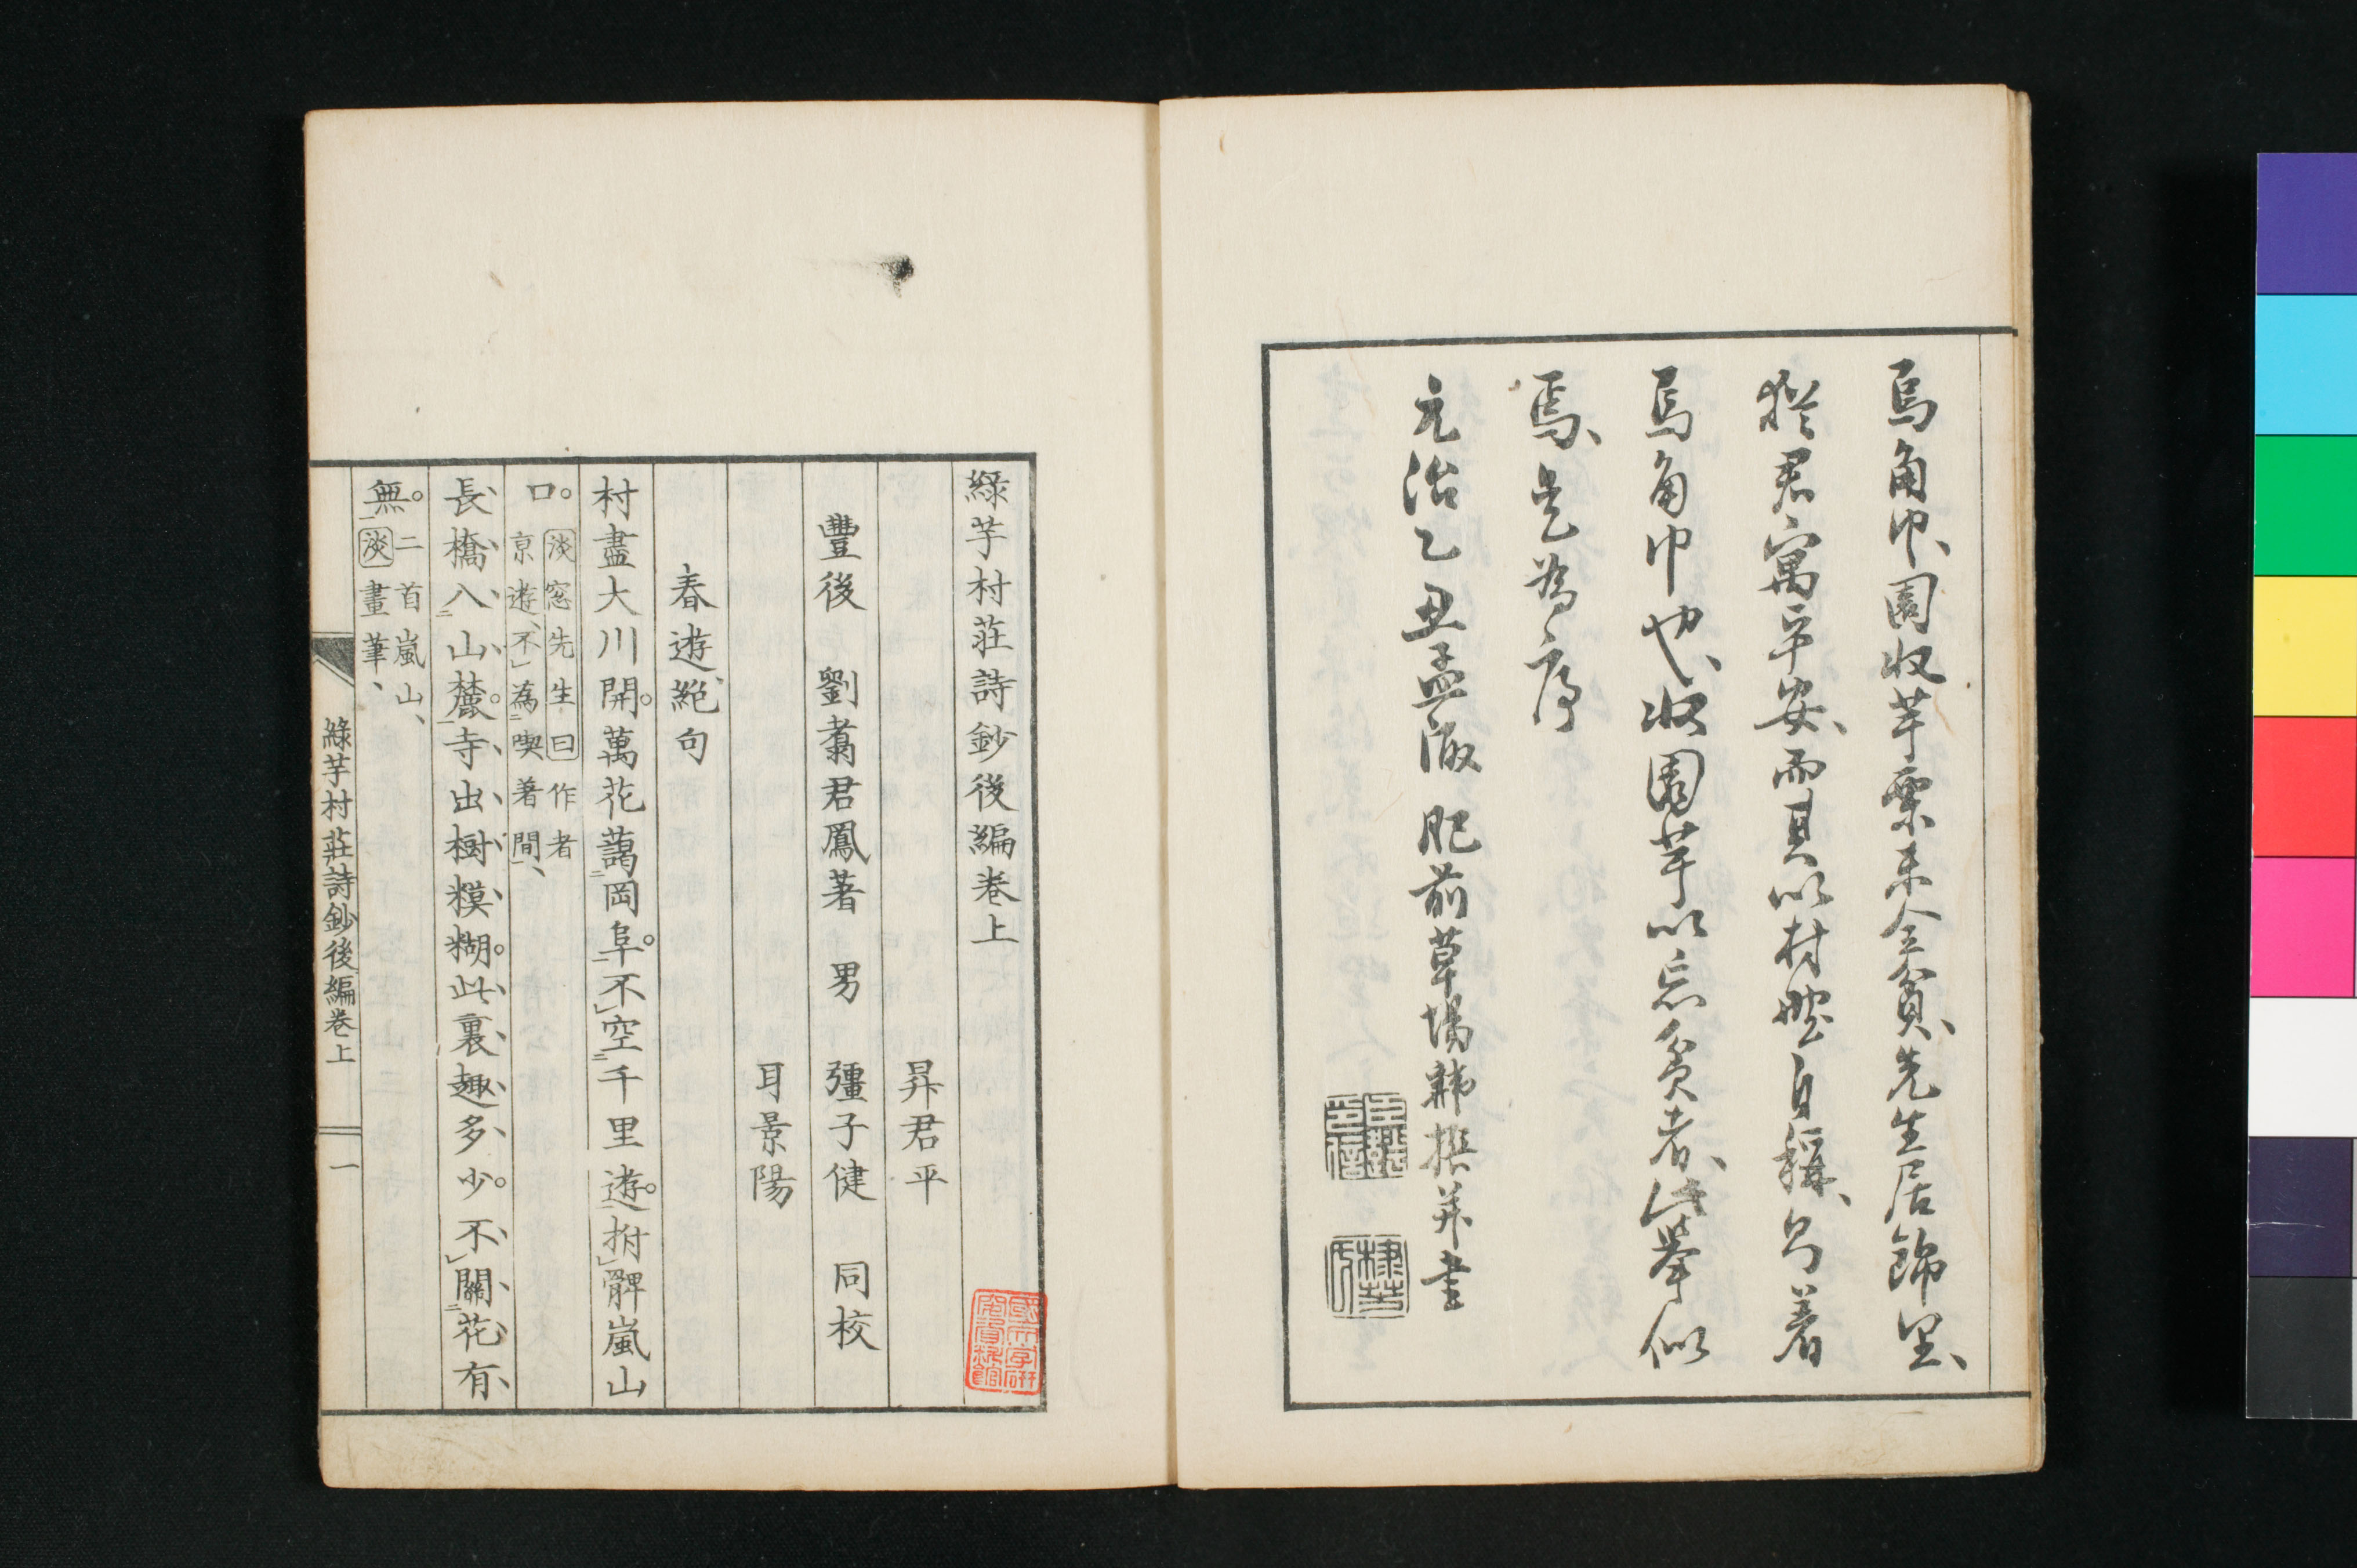 烏角巾、園收芋栗未全貧、先生居錦里、
猶君寓平安、而其以村野自稱、乃著
烏角巾也、收園芋以忘貧者、此擧似
焉、是爲序
元治乙丑孟陬 肥前草場韡撰并書
綠芋村莊詩鈔後編卷上
昇君平
豐後 劉翥君鳳著 男 彊子健 同校
耳景陽
春遊絶句
村盡大川開。萬花藹岡阜。不空千里遊。拊髀嵐山
口。淡窓先生曰作者
京遊、不爲喫著間、
長橋入山麓。寺出樹糢糊。此裏趣多少。不關花有
無。二首嵐山、
淡畫筆、
綠芋村莊詩鈔後編卷上 一